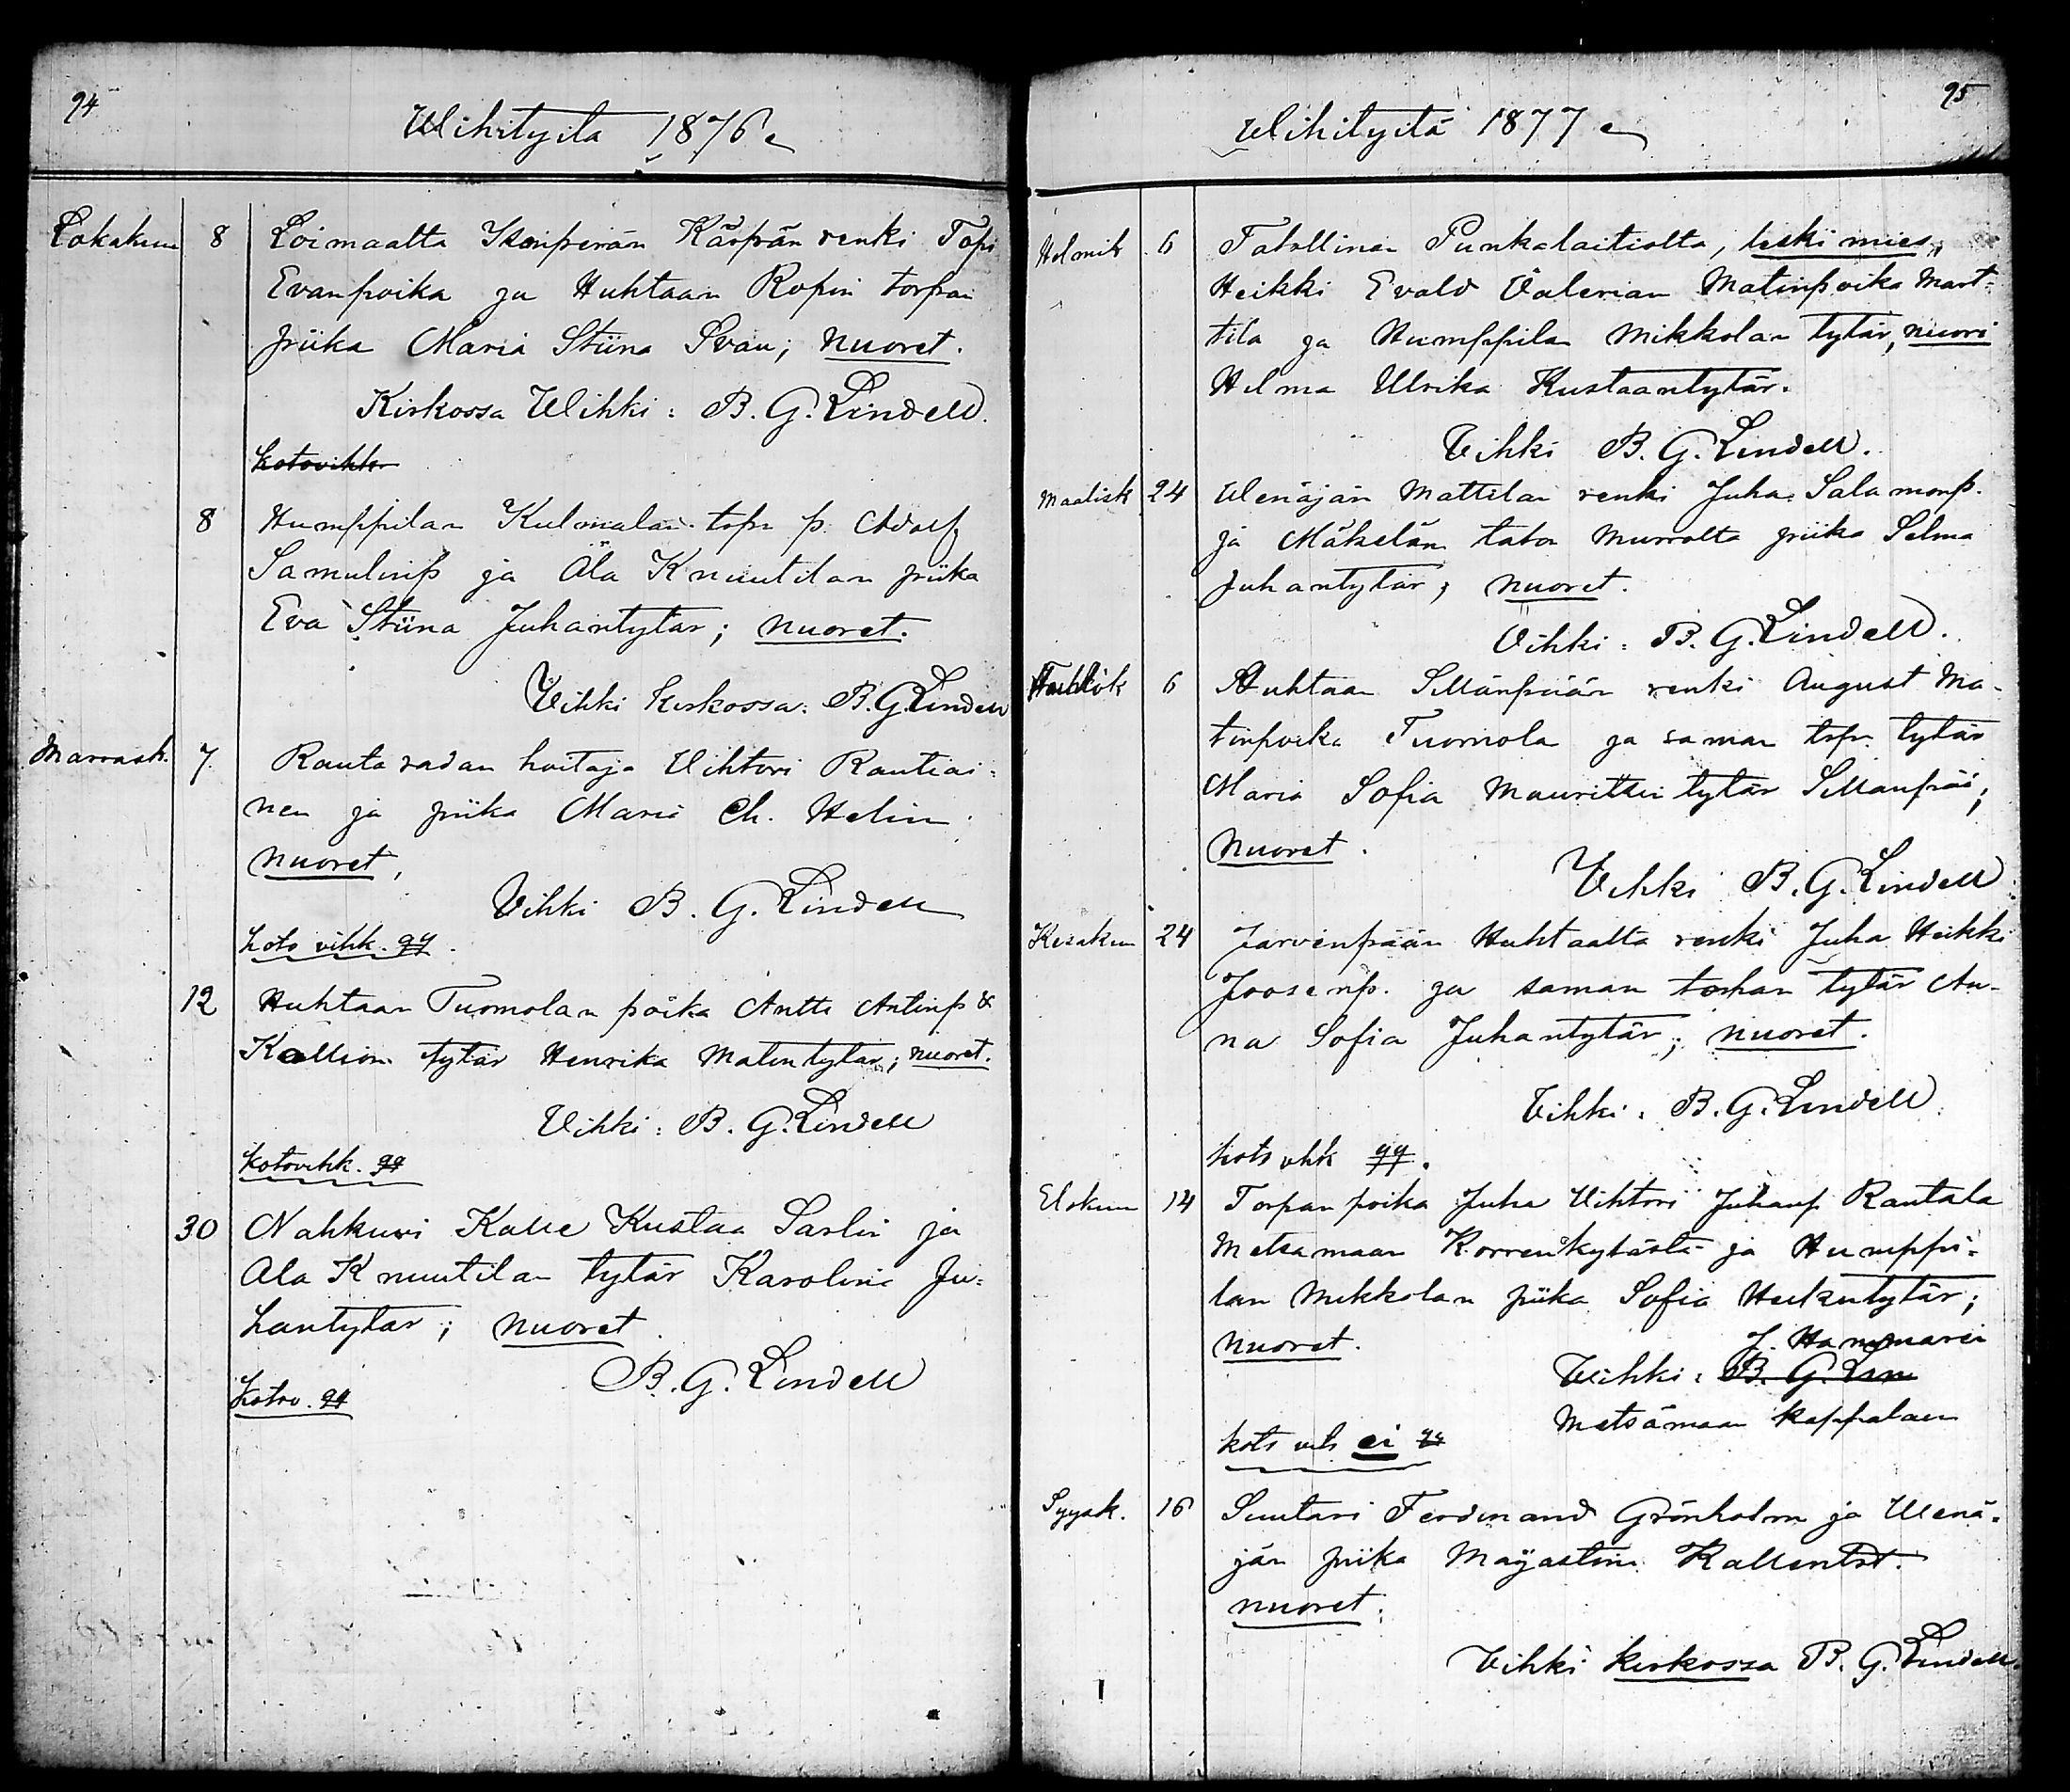 94
Wihityitä 1876
Lokakuu 8 Loimaalta Isonperän Käsprän renki Topi
Evanpoika ja Huhtaan Ropin torpan
piika Maria Stiina Svan; nuoret.
Kirkossa Wihki: B. G. Lindell.
kotovihk
8 Humppilan Kulmalan torp p. Adolf
Samulinp ja Ala Knuutilan piika
Eva Stiina Juhantytär; nuoret.
Vihki kirkossa: B. G. Lindell
Marrask. 7 Rautaradan hoitaja Vihtori Rautiai-
nen ja piika Maria Ch. Helin
nuoret,
Vihki B. G. Lindell
koto vihk. gg.
12 Huhtaan Tuomolan poika Antti Antinp &
Kallion tytär Henrika Matintytär; nuoret.
Vihki: B. G. Lindell
kotovihk. gg
30 Nahkuri Kalle Kustaa Sarlin ja
Ala Knuutilan tytär Karolina Ju-
hantytär; nuoret.
B. G. Lindell
kotov. gg
95
Wihityitä 1877
Helmik 6 Tatallinen Punkalaitiolta, leski mies,
Heikki Evald Valerian Matinpoika Mart-
tila ja Humppilan Mikkolan tytär, nuori
Helma Ulrika Kustaantytär.
Vihki B. G. Lindell.
Maalisk 24 Wenäjän Mattilan renki Juha Salamonp.
ja Mäkelän talon Murrolta piika Selma
Juhantytär; nuoret.
Vihki: B. G. Lindell.
6 Huhtaan Sillanpään renki August Ma-
tinpoika Tuomola ja saman torp. tytär
Maria Sofia Mauritzin tytär Sillanpää;
nuoret.
Vihki B. G. Lindell
Kesäkuu 24 Jarvenpään Huhtaalta renki Juha Heikki
Joosenp. ja saman torpan tytär An-
na Sofia Juhantytär; nuoret.
Vihki: B. G. Lindell.
koto vihk gg.
Elokuu 14 Torpan poika Juha Vihtori Juhanp Rautala
Metsämaan Korrenkylästä ja Humppi-
lan Mikkolan piika Sofia Heikintytär;
nuoret.
J. Hammarén
Vihki: B. G. Lin
Metsämaan kappalaen
koto vih ei gg
Syysk. 16 Suutari Ferdinand Grönholm ja Wenä-
jän piika Majastina Kallentyt.
nuoret.
Vihki kirkossa B. G. Lindell.